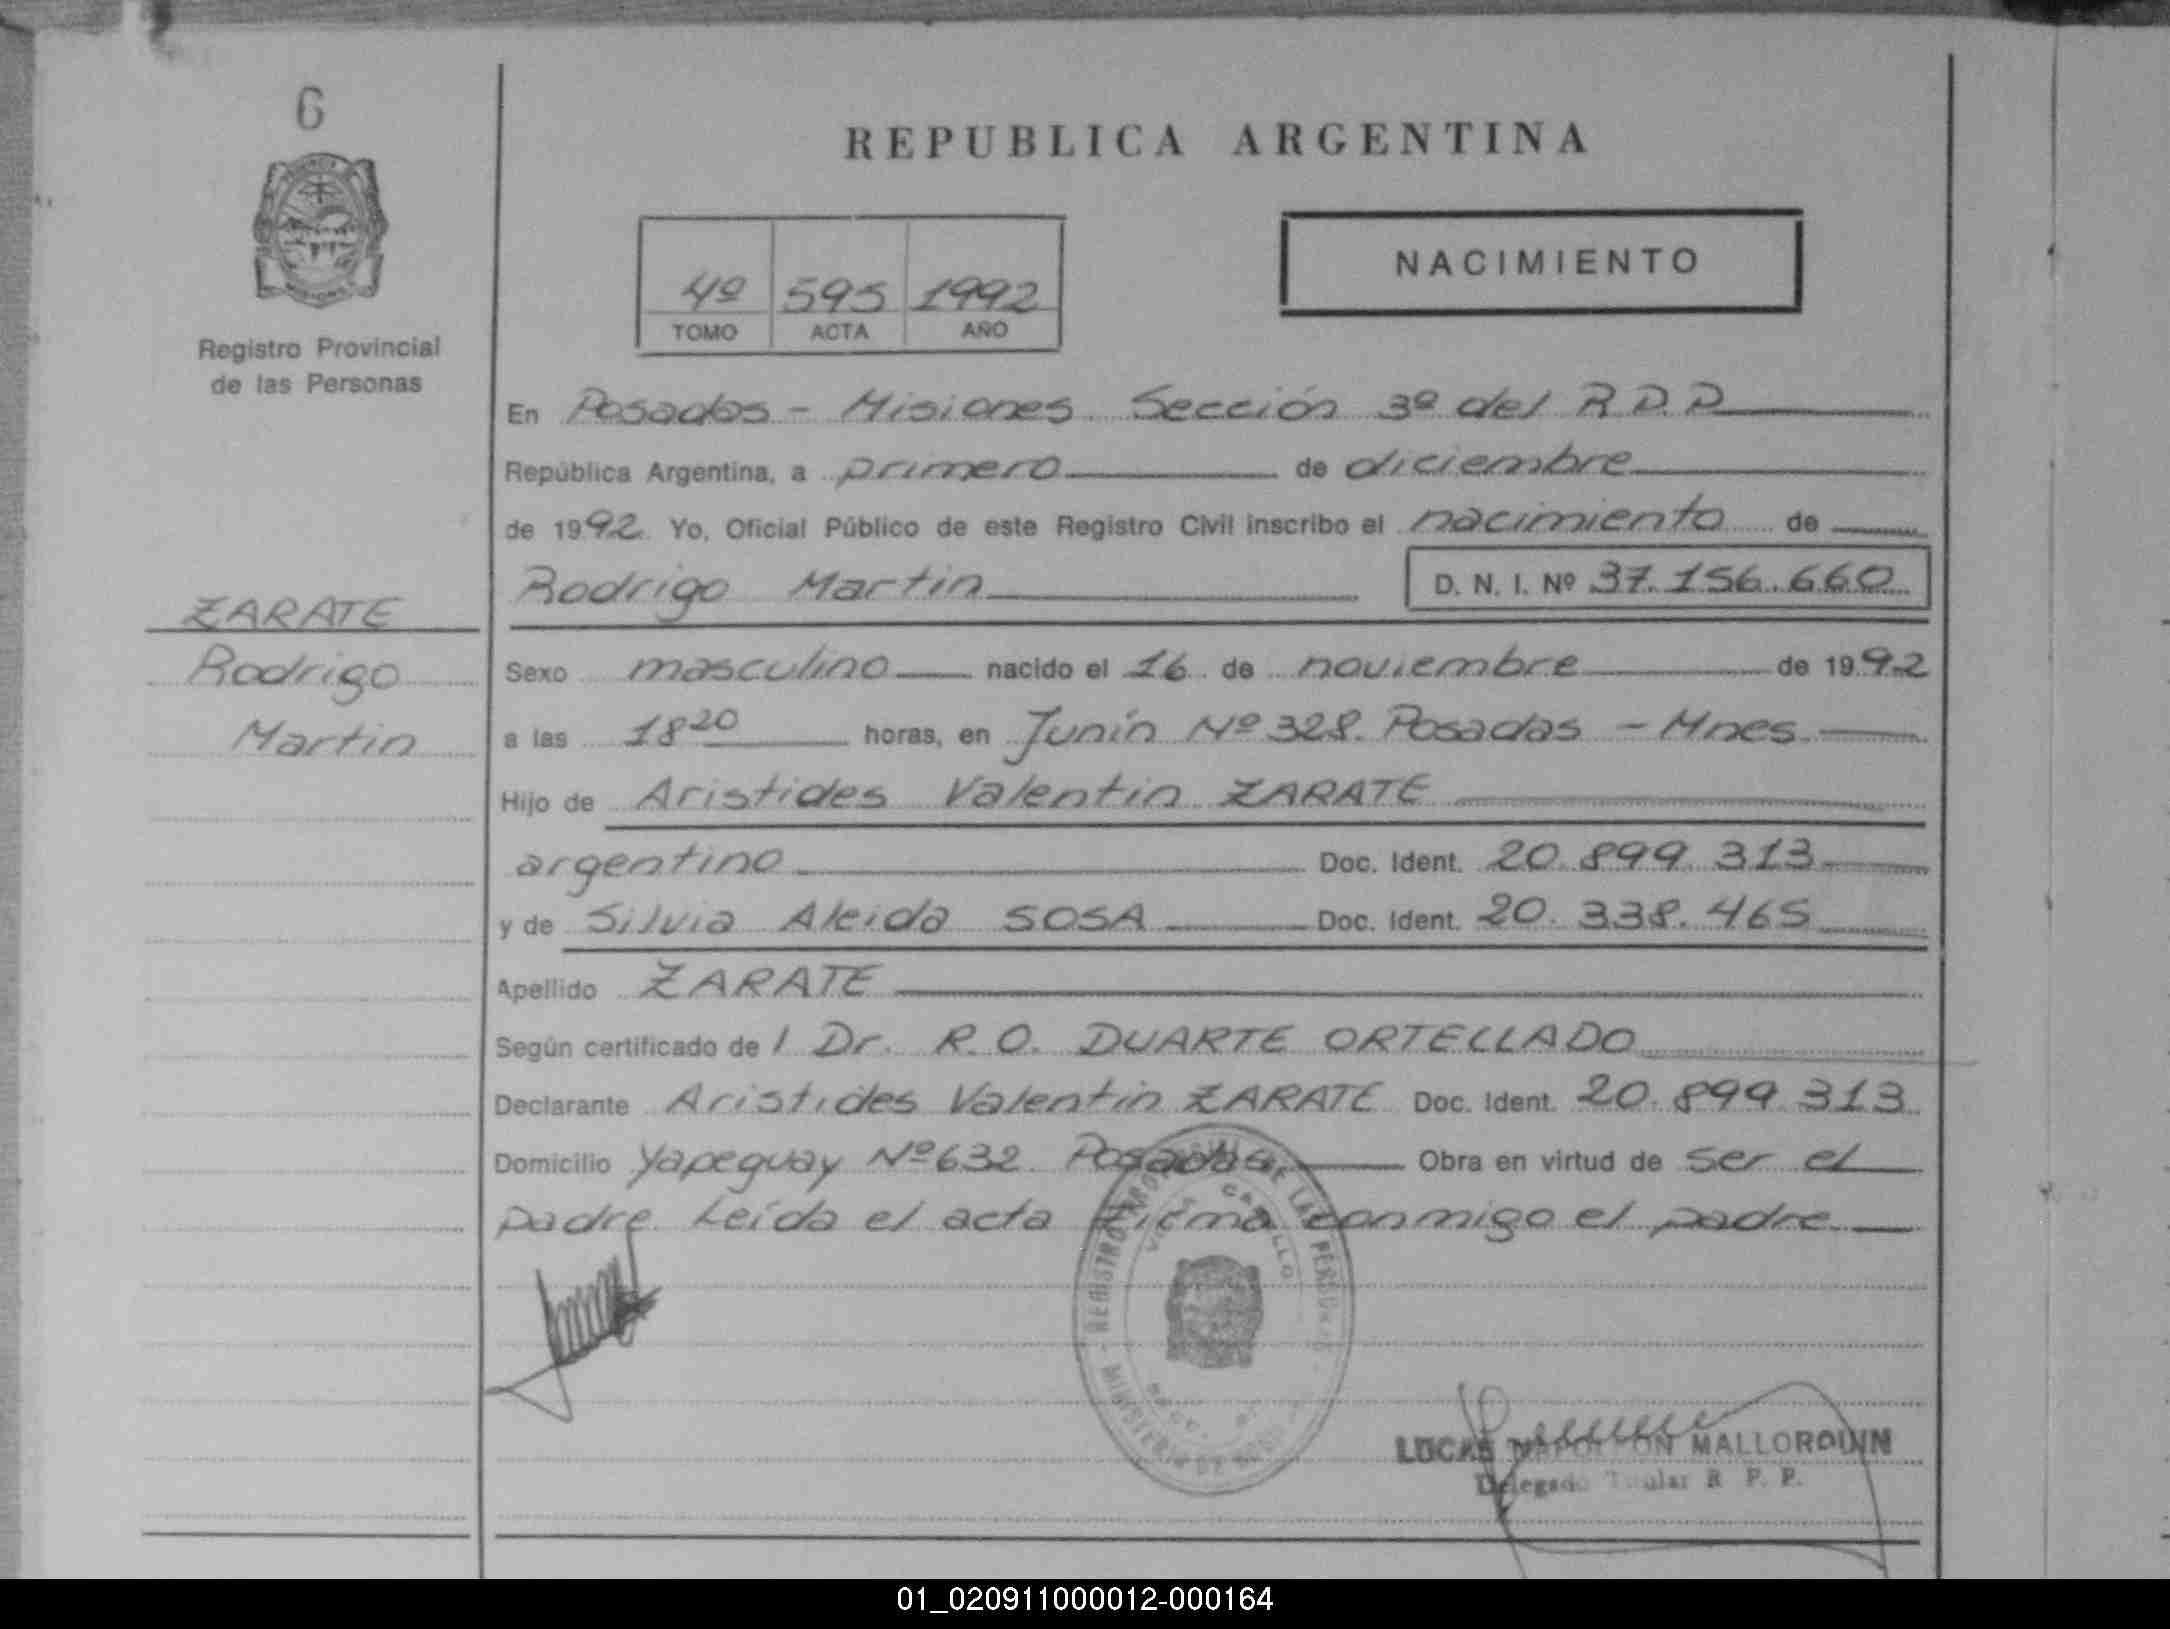 6
REPUBLICA ARGENTINA
NACIMIENTO
4º 595 1992
TOMO ACTA AÑO
Registro Provincial
de las Personas
En Posadas - Misiones Sección 3º del R.P.P
República Argentina, a primero de diciembre
de 1992. Yo, Oficial Público de este Registro Civil inscribo el nacimiento de
Rodrigo Martin D. N. I. Nº 37.156.660
ZARATE
Rodrigo
Martin
Sexo masculino nacido el 16 de noviembre de 1992
a las 18 20 horas, en Junín Nº 328. Posadas - Mnes.
Hijo de Aristides Valentin ZARATE
argentino Doc. Ident. 20.899.313
y de Silvia Aleida SOSA Doc. Ident. 20.338.465
Apellido ZARATE
Según certificado de l Dr. R.O. DUARTE ORTELLADO
Declarante Aristides Valentin ZARATE Doc. Ident. 20.899.313
Domicilio Yapeguay Nº 632 Posadas. Obra en virtud de ser el
padre. Leída el acta firma conmigo el padre
REGISTRO DE LAS PERSONAS
MINISTERIO DE
LUCAS NAPOLEON MALLORQUIN
Delegado Titular R. P. P.
01_020911000012-000164